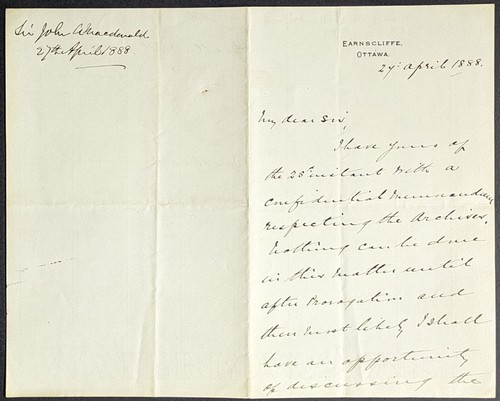 Sir John A Macdonald
27th April 1888
EARNSCLIFFE,
OTTAWA.
27 April 1888.
My dear Sir,
I have yours of
the 25 instant with a
confidential Memorandum
respecting the Archives.
Nothing can be done
in this matter until
after Prorogation and
then most likely I shall
have an opportunity
of discussing the